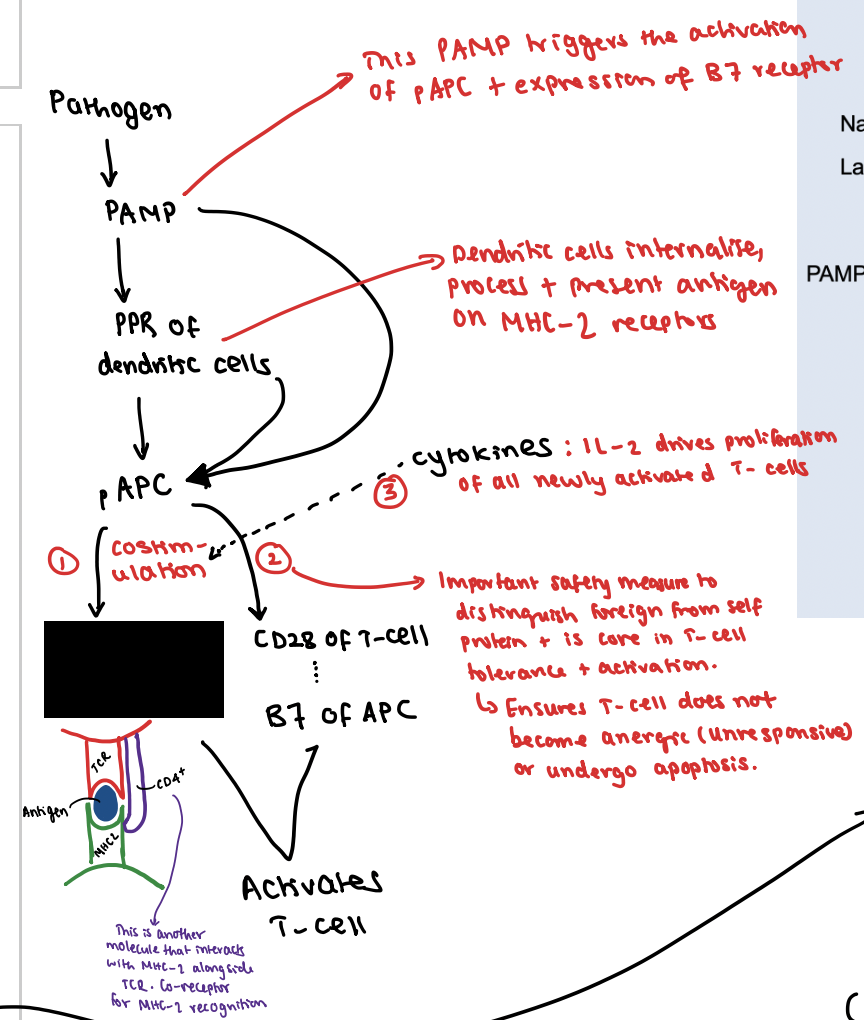 This PAMP triggers the activation
of pAPC + expression of B7 receptor
Pathogen
Na
La
PAMP
Dendritic cells internalise,
process + present antigen
on MHC-2 receptors
PAMP
PPR of
dendritic cells
cytokines : IL-2 drives proliferation
of all newly activated T-cells
③
pAPC
①
costim-
ulation
②
Important safety measure to
distinguish foreign from self
protein + is core in T-cell
tolerance + activation.
↳ Ensures T-cell does not
become anergic (unresponsive)
or undergo apoptosis.
CD28 OF T-cell
B7 OF APC
TCR
CD4+
Antigen
MHC2
Activates
T-cell
This is another
molecule that interacts
with MHC-2 alongside
TCR. Co-receptor
for MHC-2 recognition